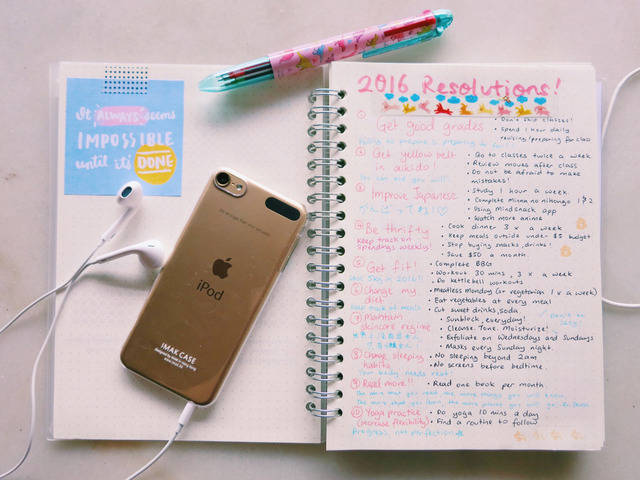 It ALWAYS seems
IMPOSSIBLE
until it's DONE
iPod
IMAK CASE
2016 Resolutions!
① Get good grades
• Don't skip classes!
• Spend 1 hour daily
revising/preparing for class
② Get yellow belt
in aikido!
• Go to classes twice a week
• Review moves after class
• Do not be afraid to make
mistakes!
③ Improve Japanese
がんばってね!
• Study 1 hour a week.
• Complete Minna no nihongo 1 & 2
• Using mindsnack app
• Watch more anime
④ Be thrifty
Keep track on
spendings weekly!
• Cook dinner 3 x a week
• Keep meals outside under $5 budget
• Stop buying snacks, drinks!
• Save $50 a month.
⑤ Get fit!
• Complete BBG
• Workout 30 mins, 3 x a week
• Do kettlebell workouts
⑥ Change my
diet
• Meatless Monday (or vegetarian 1 x a week)
• Eat vegetables at every meal
• Cut sweet drinks, soda
⑦ Maintain
skincare regime
• Sunblock, everyday!
• Cleanse. Tone. Moisturize!
• Exfoliate on Wednesdays and Sundays
• Masks every Sunday night.
Don't be
lazy!
⑧ Change sleeping
habits
Your body needs rest
• No sleeping beyond 2am
• No screens before bedtime.
⑨ Read more!!
• Read one book per month.
The more that you read, the more things you will know,
The more that you learn, the more places you will go. - Dr. Seuss
⑩ Yoga practice
(increase flexibility)
• Do yoga 10 mins a day
• Find a routine to follow
Progress, not perfection